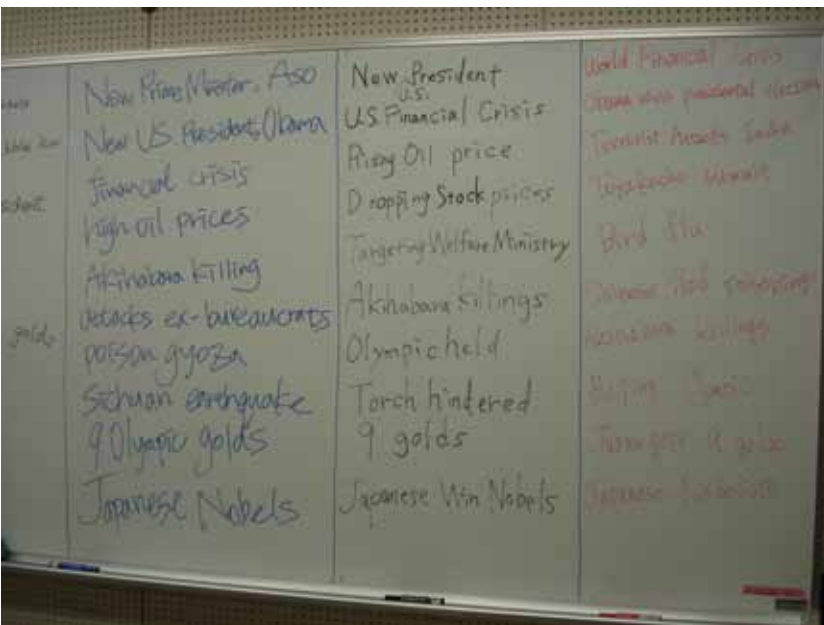 golds
New Prime Minister, Aso
New US President, Obama
financial crisis
high oil prices
Akihabara killing
attacks ex-bureaucrats
poison gyoza
Sichuan earthquake
9 Olympic golds
Japanese Nobels
New President
U.S.
U.S. Financial Crisis
Rising Oil price
Dropping Stock prices
Targeting Welfare Ministry
Akihabara killings
Olympic held
Torch hindered
9 golds
Japanese Win Nobels
World Financial Crisis
Obama wins presidental election
Terrorist India
Summit
Bird flu
food poisoning
Akihabara killings
Beijing
9 golds
Japanese